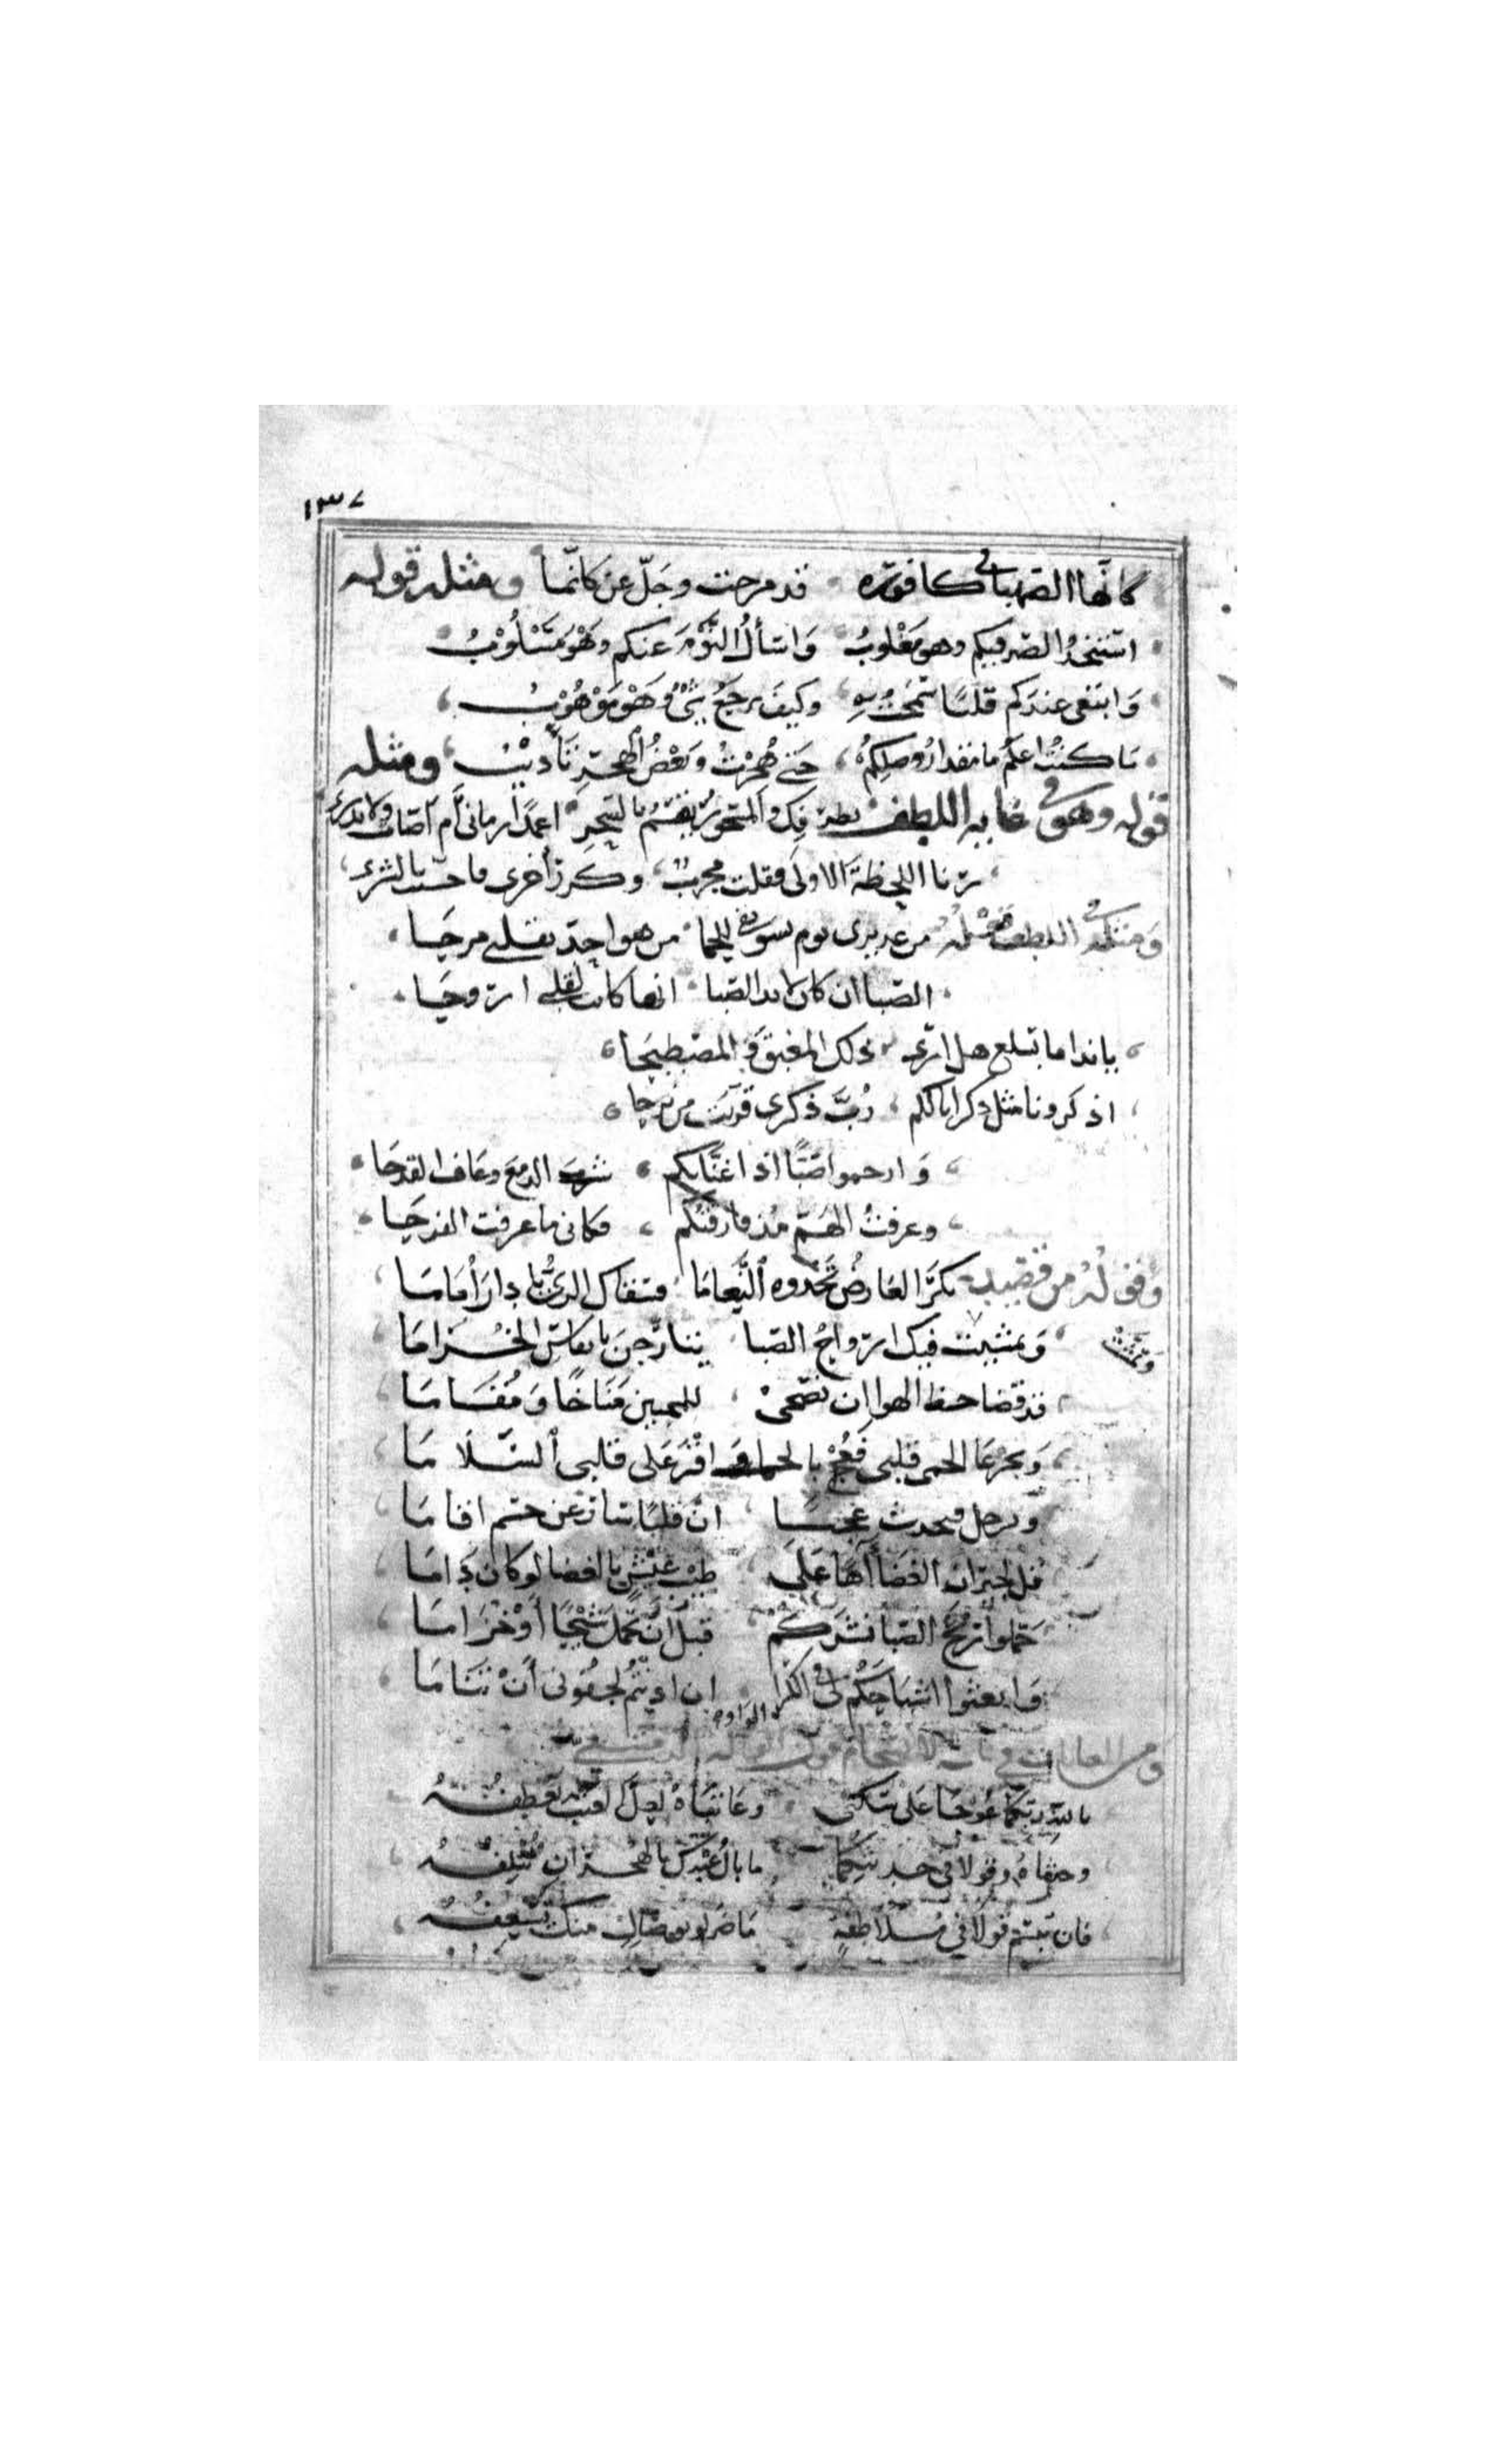 ١٣٧
كانها الصهبا في كافوره قد مزجت وجلّ عن كانّما ومثله قوله
استنجدُ الصبر فيكم وهو مغلوبُ وَاسألُ النّوْمَ عنكم وهْوَ مَسْلُوْبُ
وَابتغى عندكم قلبًا سَمَحتُ به وكيفَ يرجعُ شىْءٌ وَهْوَ مَوْهُوْبُ
مَا كنتُ اعلمُ ما مقدارُ وصلِكُم حتى هُجرْتُ وَبَعْضُ الهجرِ تَأديْبُ ومثله
قوله وهو فى غايه اللطف نظرة منك والمتحورُ يقسمُ بالسحر اعمدًا رمانى أم اصاب ولا يدرى
رنا اللحظةَ الاولى فقلت مجربٌ وكرر أخرى فاحسّت بالشر
وَمثله فى اللطف من عذيرى يوم شرقى الحما من هوا جدّ بقلبى مزحَا
الصبا ان كان لا بد الصبا انها كانت لقلبى اروحَا
يا نداما بسلع هل ارى ذلك المغبق وَالمصطبَحا
اذكرونا مثل ذكرانا لكم رُبَّ ذكرى قربَت من نزحا
وَارحموا صَبًّا اذا غنّى بكم شربَ الدمعَ وعَاف القدحَا
وعرفتُ الهَمّ مُذ فارقتكم فكانى ما عرفت الفرحَا
وَقوْلُهُ من قصيده بكرَ العَارضُ تحْدُوه النُّعَامَا فسَقاك الرىُّ يا دارَ أُمَامَا
وَتمشّت
وَتمشيت فيك ارواحُ الصبا يتأرّجنَ بانفاسِ الخُزامَا
قد قضا حفظ الهوا ان تصحى للمحبين مَنَاخًا وَمُقَامَا
وَبجرعَا الحمى قلبى فعُجْ بالحما وَاقْرَ عَلى قلبى السّلَامَا
وَترحل فتحدث عجبَا انّ قلبًا سَار عن جسْم اقامَا
قل لجيران الغضَا آهًا عَلَى طيْبِ عَيْشٍ بالغضا لو كان دَامَا
حَمّلوا ريحَ الصبا نشرَكُمُ قبلَ أنْ تحمِلَ شِيْحًا أوْ خُزَامَا
وَابعثوا اشبَاحَكُم لى فى الكرَا ان اذِنتُم لجفونى أَنْ تنَامَا
بالله ربّكما عُوْجَا على سَكَنى وعَاتبَاهُ لعلَّ العَتْبَ يَعْطِفُهُ
وعرّضَا بى وقولا فى حديثكما ما بالُ عَبْدِكَ بالهُجْرَانِ تُتْلِفُهُ
فان تبسّم قولا فى مُلَاطفَةٍ مَا ضرّ لو بوصَالٍ منكَ تُسْعِفُهُ